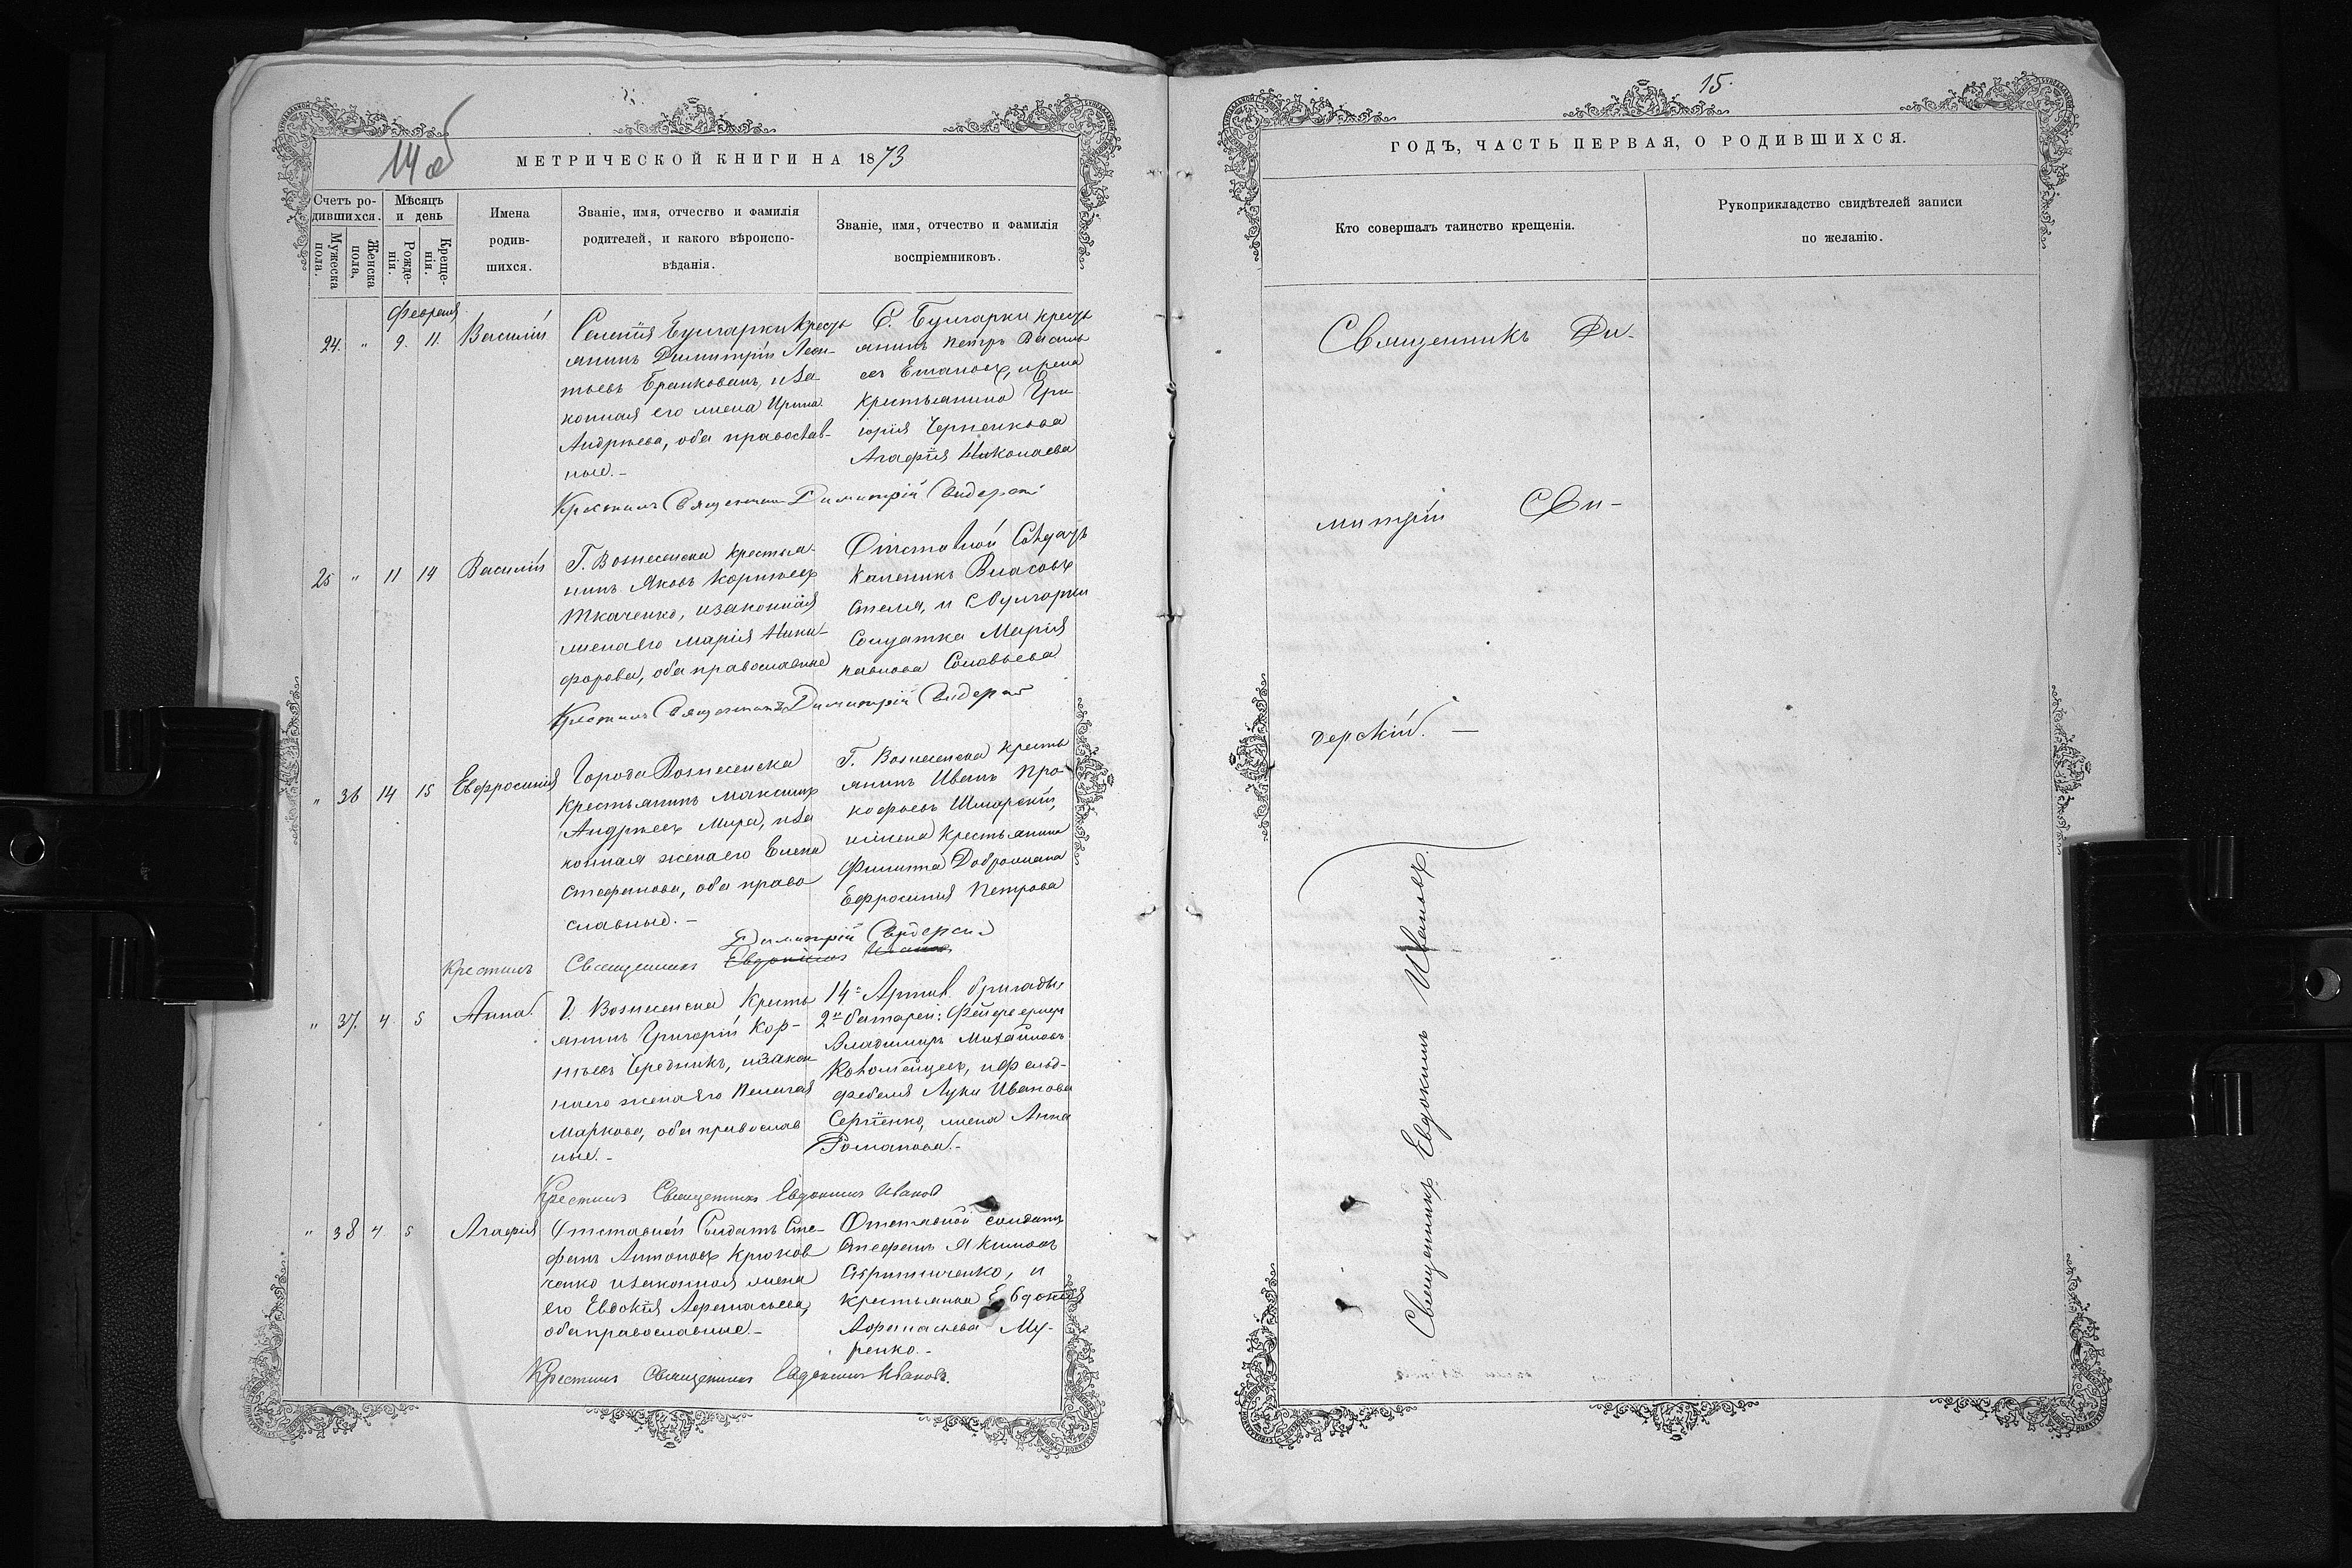 14 об
МЕТРИЧЕСКОЙ КНИГИ НА 1873
Счетъ ро-
дившихся.
Мужеска
пола.
Женска
пола,
Мѣсяцъ
и день
Рожде-
нія.
Креще-
нія.
Имена
родив-
шихся.
Званіе, имя, отчество и фамилія
родителей, и какого вѣроиспо-
вѣданія.
Званіе, имя, отчество и фамилія
воспріемниковъ.
Февраля
24. " 9. 11. Василій
Селенія Булгарки Кресть
янинъ Димитрій Леон-
тьевъ Бранкованъ, иза
конная его жена Ирина
Андрѣева, оба православ-
ные.-
С. Булгарки кресть
янинъ Петръ Василь
евъ и жена
крестьянина Гри
горія
Агафія Николаева
Крестилъ Священникъ Димитрій Свидерскій
25 " 11 14 Василій
Г. Вознесенска крестья-
нинъ Яковъ Корнѣевъ
Ткаченко, изаконная
жена его Марія Ники-
форова, оба православные
Отставной Солдатъ
Каленикъ Власовъ
и С Булгарки
Солдатка Марія
Павлова Соловьева
Крестилъ Священникъ Димитрій Свидерскій
" 36 14 15 Евфросинія
Города Вознесенска
Крестьянинъ Максимъ
Андрѣевъ Мира, иза
конная жена его Елена
Стефанова, оба право
славные.-
Г. Вознесенска кресть
янинъ Иванъ Про-
кофьевъ
ижена Крестьянина
Филиппа
Ефросинія Петрова
Димитрій Свидерскій
Крестилъ Священникъ Евдокимъ Иванов
" 37. 4. 5 Анна
Г. Вознесенска Кресть
янинъ Григорій Кор-
нѣевъ Чередникъ, изакон
ная жена Его Пелагея
Маркова, оба православ
ные.-
14й Артил. бригады
2й батареи: Фейерверкеръ
Владимиръ Михайловъ
Коломейцевъ, и Фельд-
фебеля Луки Иванова
Сергіенко, жена Анна
Романова.-
Крестилъ Священникъ Евдокимъ Иванов
" 38 4 5 Агафія
Отставной Солдатъ Сте-
фанъ Антоновъ Крюков
ченко изаконная жена
его Евдокія Афанасьева,
оба православные.-
Отставной солдатъ
Стефанъ Якимовъ
и
крестьянка Евдокія
Афанасьева Му-
ренко.-
Крестилъ Священникъ Евдокимъ Ивановъ.
15.
ГОДЪ, ЧАСТЬ ПЕРВАЯ, О РОДИВШИХСЯ.
Кто совершалъ таинство крещенія.
Рукоприкладство свидѣтелей записи
по желанію.
Священникъ Ди-
митрій Сви-
дерскій. —
Священникъ Евдокимъ Ивановъ.